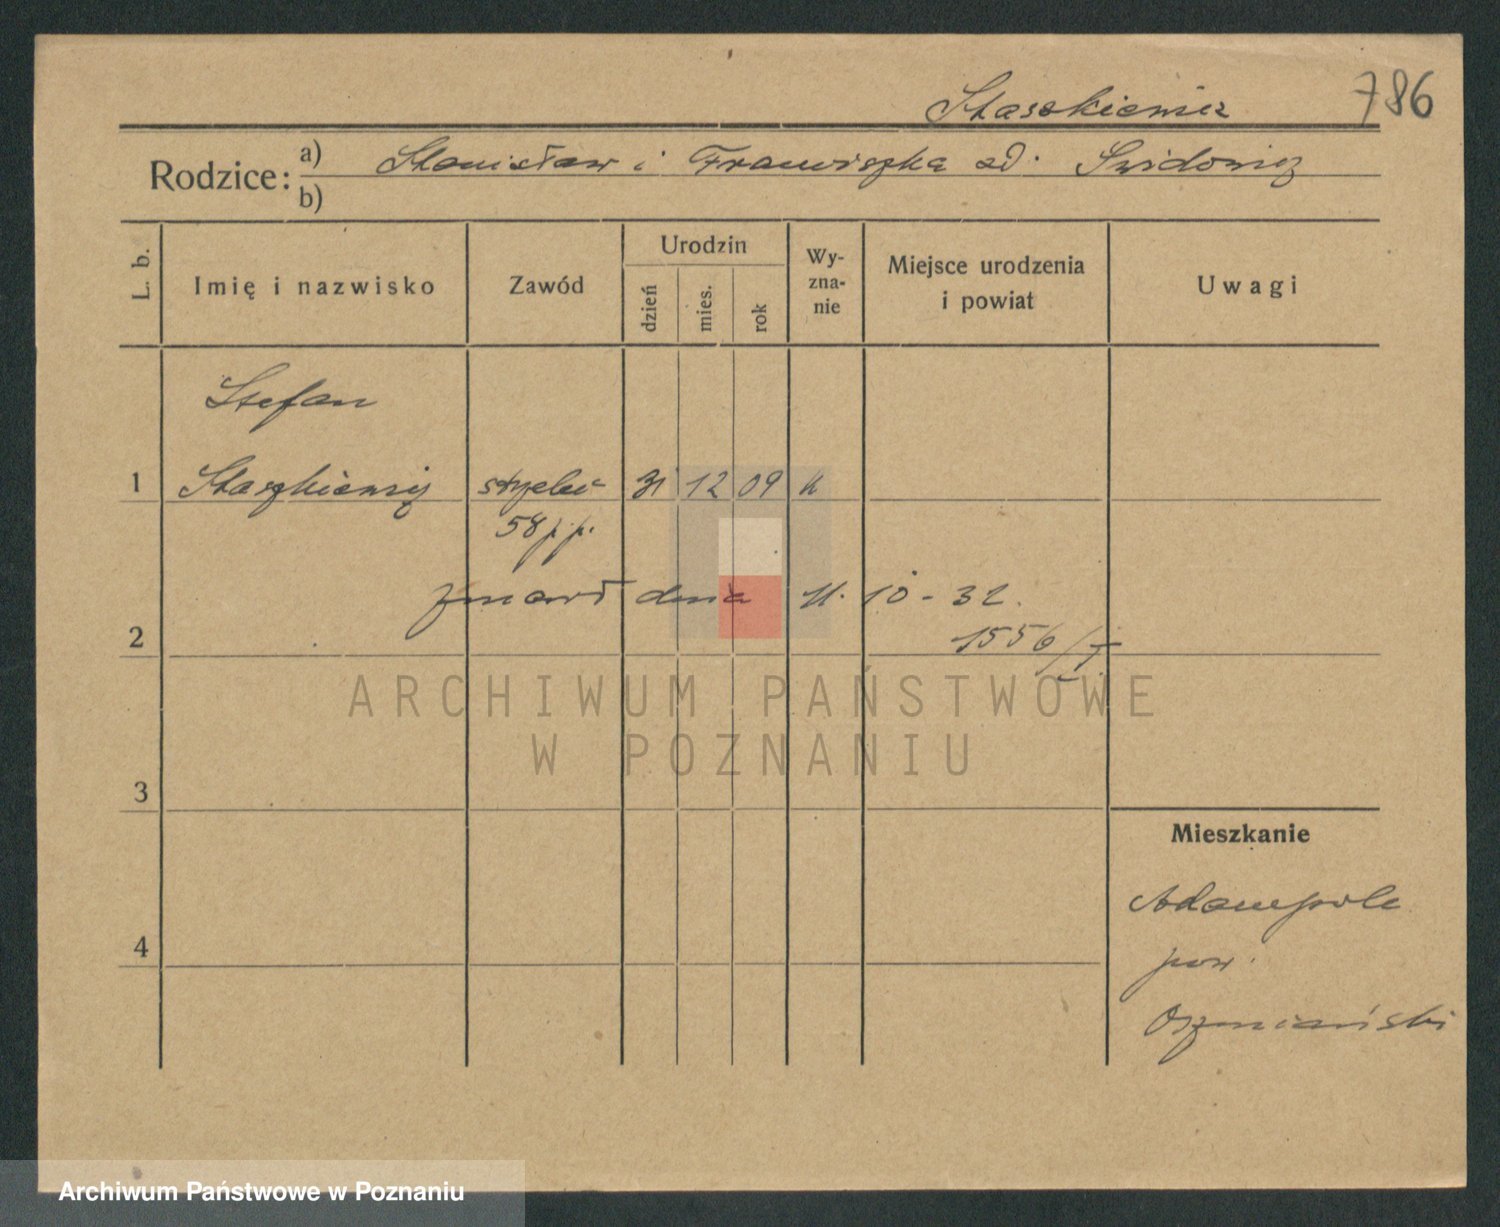 Staszkiewicz 786
Rodzice: a) Stanisław i Franciszka zd. Swidowicz
b)
L. b. Imię i nazwisko Zawód Urodzin dzień mies. rok Wy-zna-nie Miejsce urodzenia i powiat Uwagi
Stefan
1 Staszkiewicz strzelec 31 12 09 k
58 p.p.
zmarł dnia 11. 10 - 32.
2 1556/
ARCHIWUM PAŃSTWOWE
W POZNANIU
3
Mieszkanie
Adampole
4 pow.
Oszmiański
Archiwum Państwowe w Poznaniu